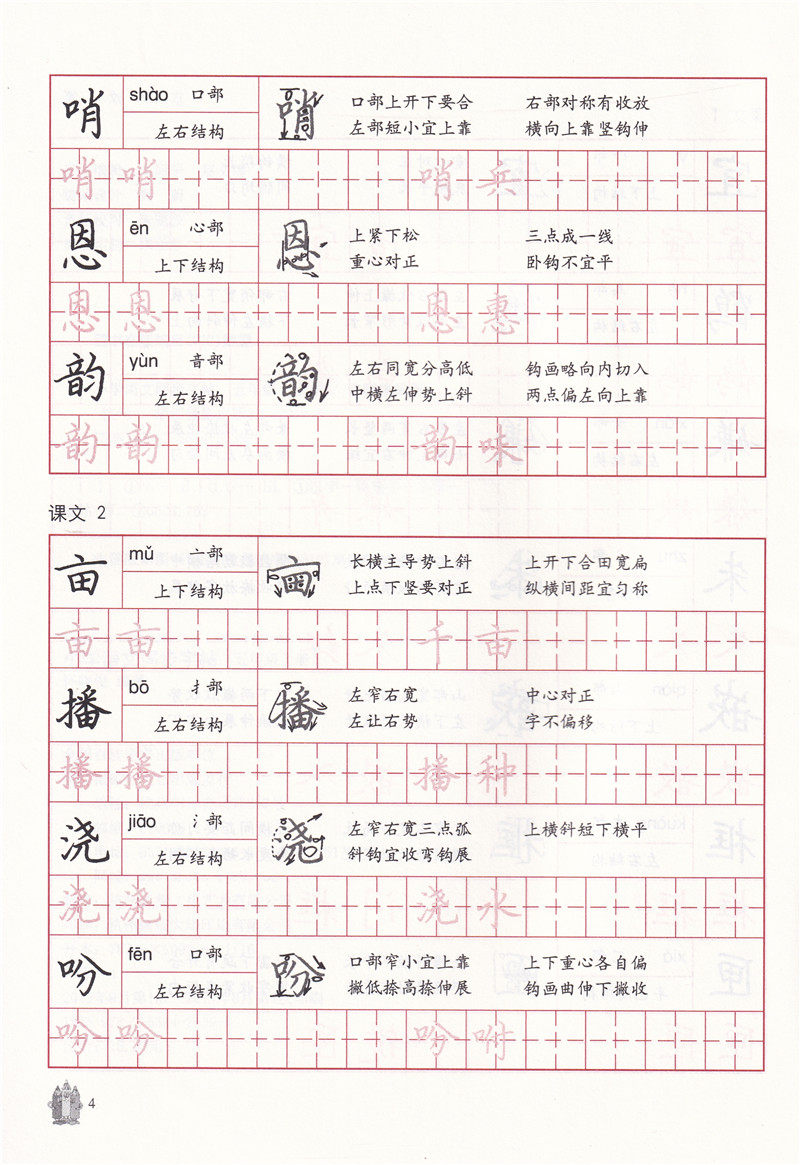 哨 shào 口部 口部上开下要合 右部对称有收放
左右结构 左部短小宜上靠 横向上靠竖钩伸
哨 哨 哨 兵
恩 ēn 心部 上紧下松 三点成一线
上下结构 重心对正 卧钩不宜平
恩 恩 恩 惠
韵 yùn 音部 左右同宽分高低 钩画略向内切入
左右结构 中横左伸势上斜 两点偏左向上靠
韵 韵 韵 味
课文 2
亩 mǔ 亠部 长横主导势上斜 上开下合田宽扁
上下结构 上点下竖要对正 纵横间距宜匀称
亩 亩 千 亩
播 bō 扌部 左窄右宽 中心对正
左右结构 左让右势 字不偏移
播 播 播 种
浇 jiāo 氵部 左窄右宽三点弧 上横斜短下横平
左右结构 斜钩宜收弯钩展
浇 浇 浇 水
吩 fēn 口部 口部窄小宜上靠 上下重心各自偏
左右结构 撇低捺高捺伸展 钩画曲伸下撇收
吩 吩 吩 咐
4